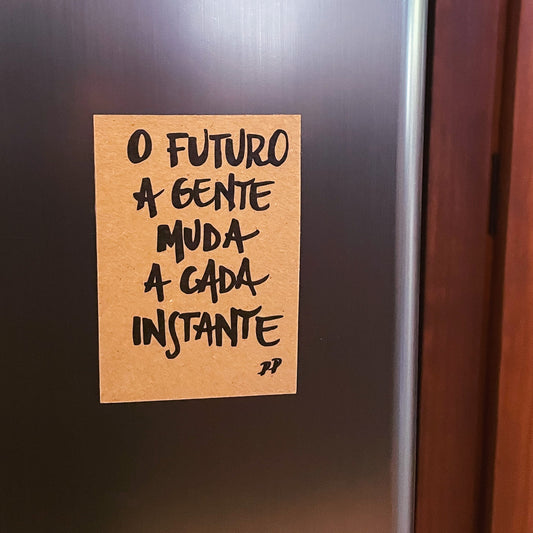 O FUTURO
A GENTE
MUDA
A CADA
INSTANTE